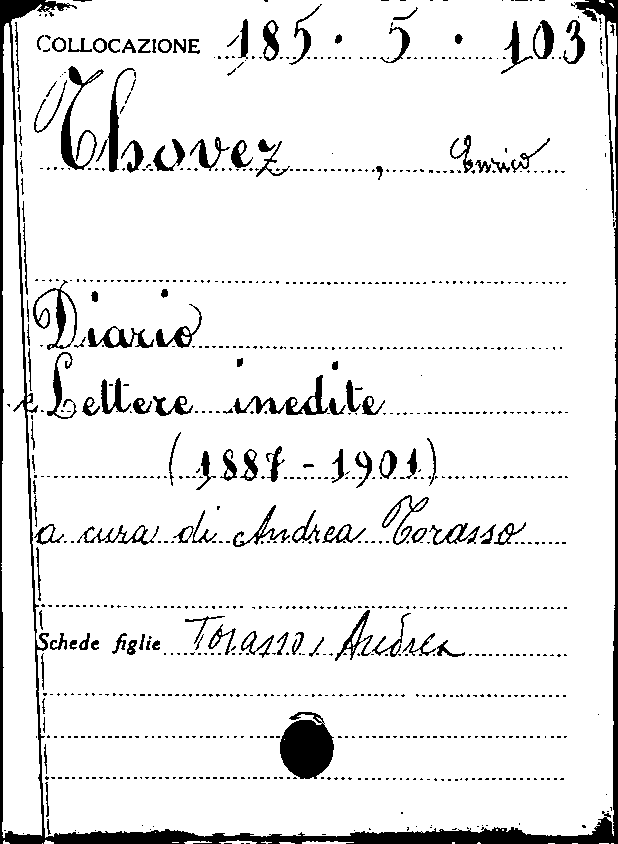 COLLOCAZIONE 185. 5. 103
Thovez, Enrico
Diario
e Lettere inedite
(1887-1901)
a cura di Andrea Torasso
Schede figlie Torasso, Andrea